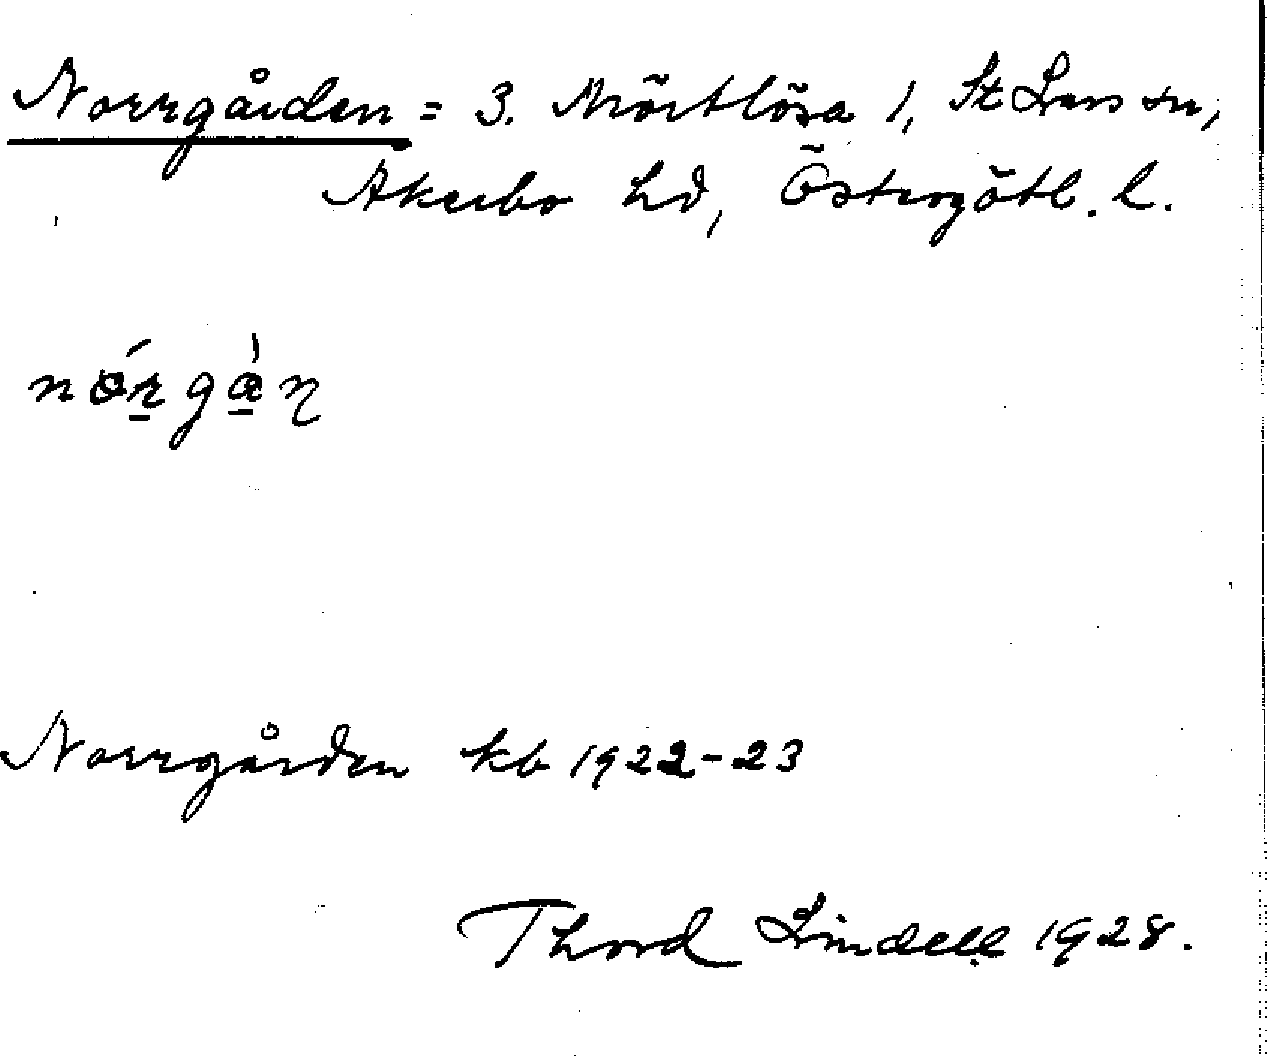 Norrgården = 3. Mörtlösa 1, St Lars sn,
Akerbo hd, Östergötl. l.
Norrgården kb 1922-23
Thord Lindell 1928.